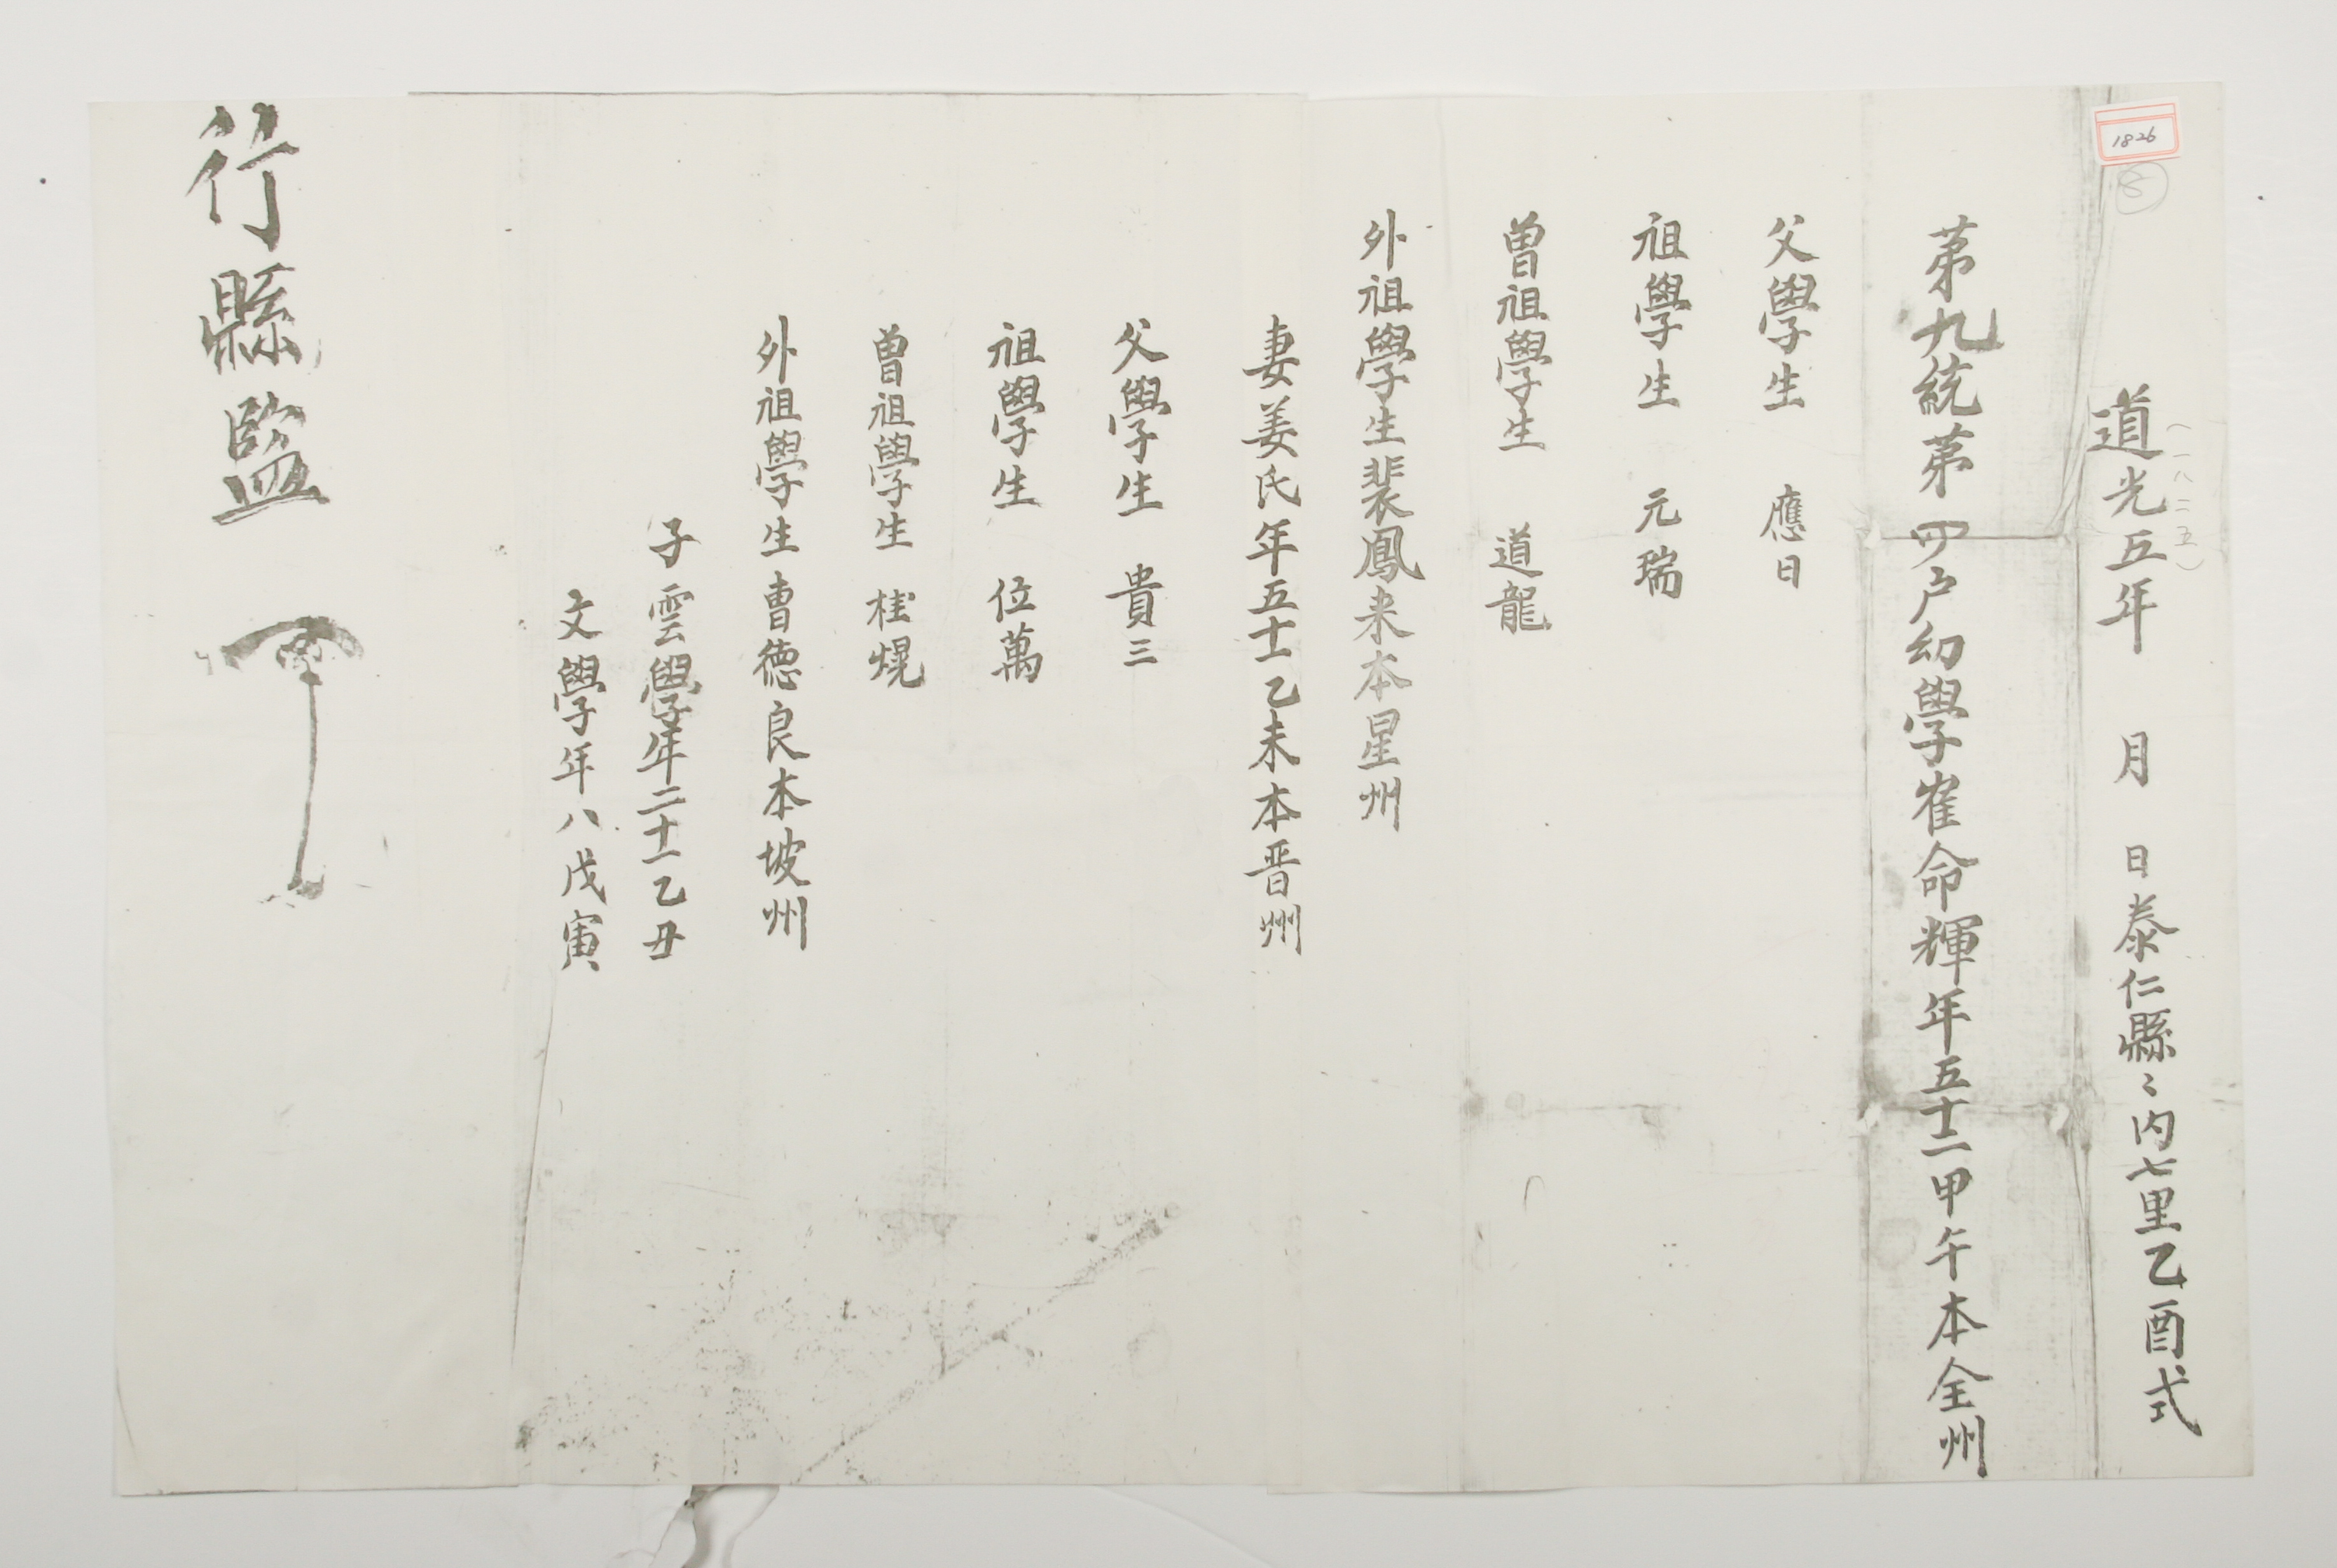 1826
8
道光五年 月 日泰仁縣〻內七里乙酉式
(一八二五)
苐九統苐四户幼學崔命輝年五十二甲午本全州
父學生 應日
祖學生 元瑞
曽祖學生 道龍
外祖學生裴鳳来本星州
妻姜氏年五十一乙未本晋州
父學生 貴三
祖學生 位萬
曽祖學生 桂熀
外祖學生曺德良本坡州
子雲學年二十一乙丑
文學年八戊寅
行縣監